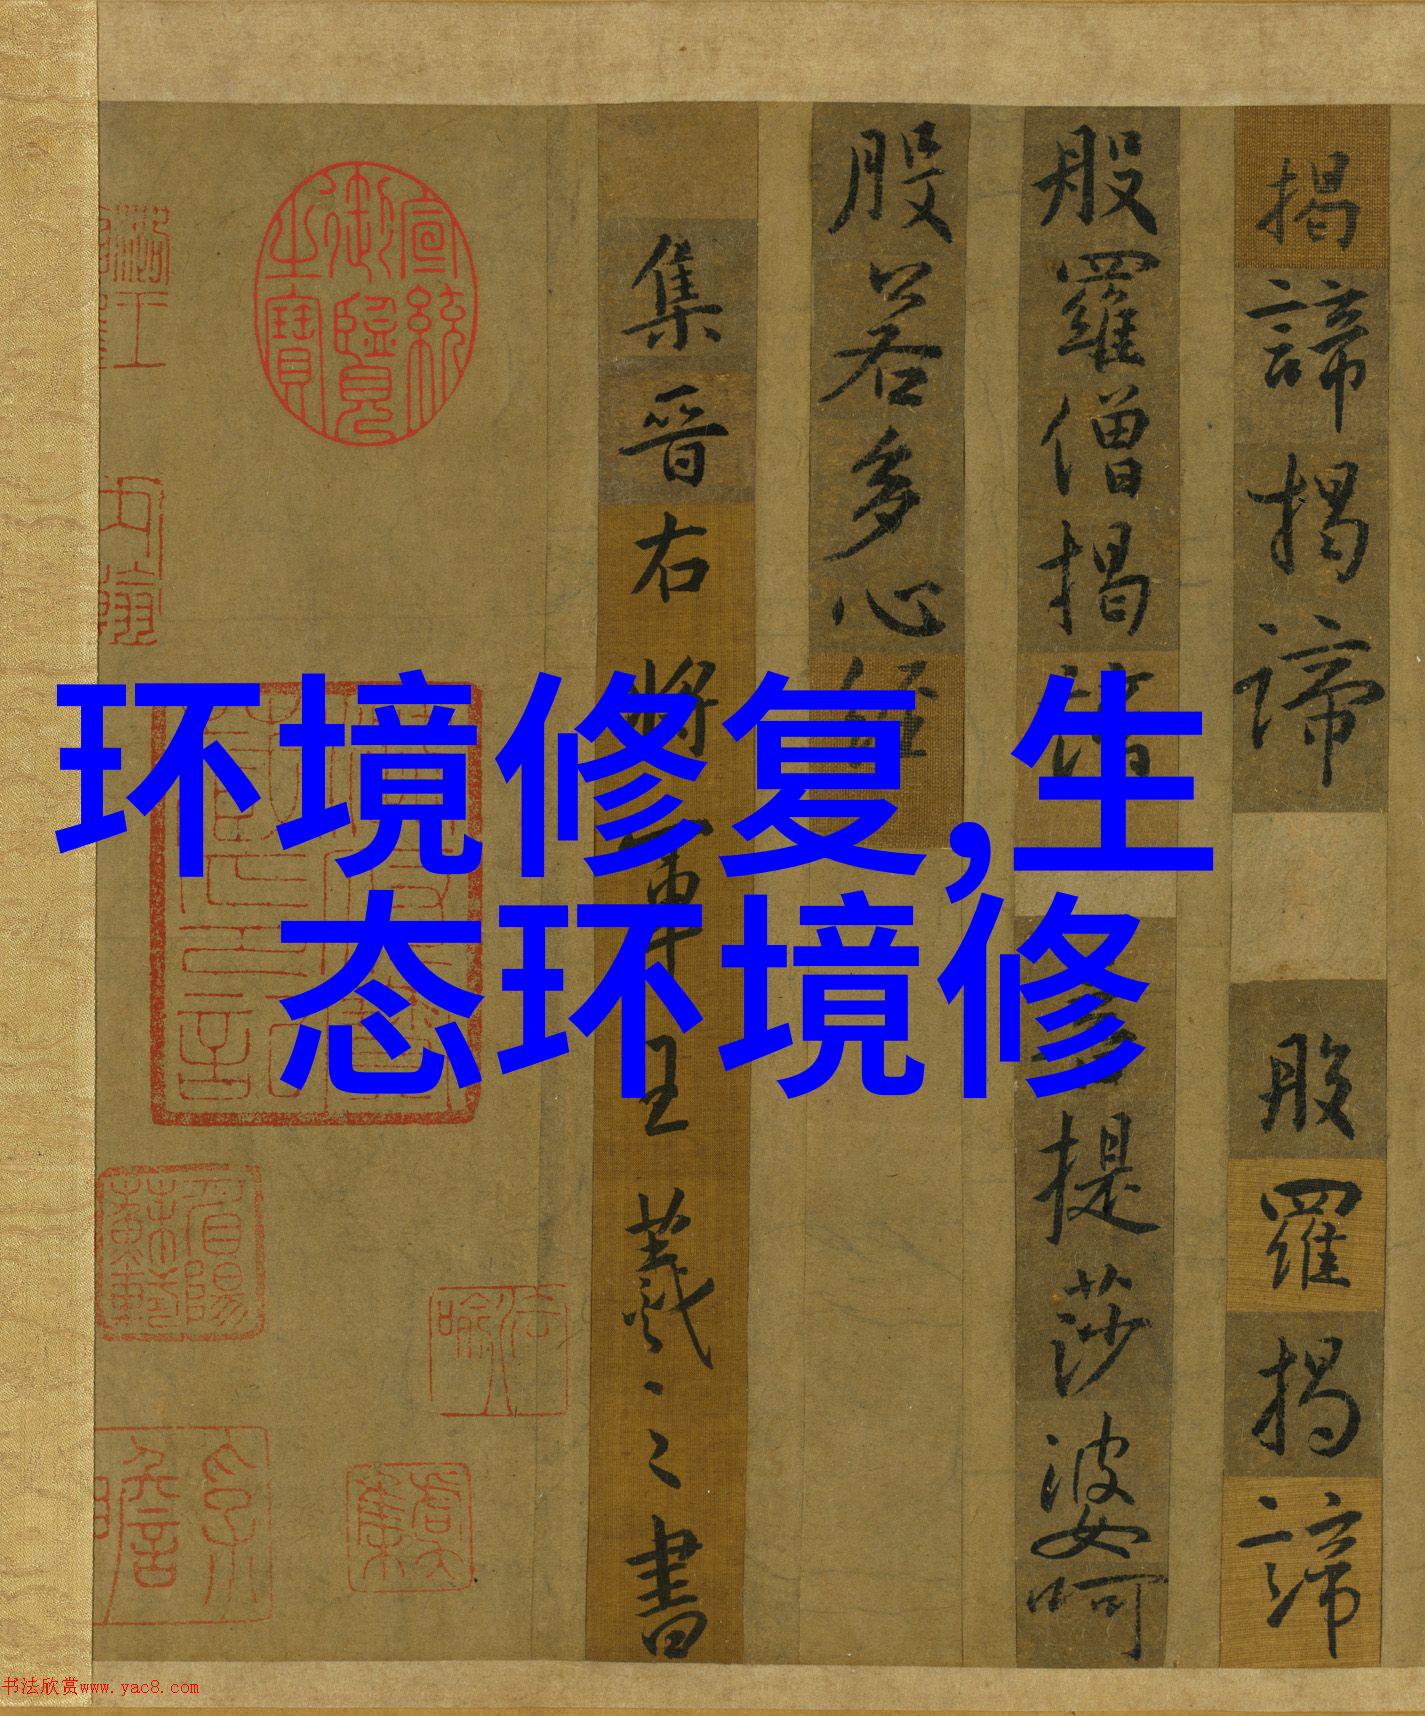 环境修复,生
态环境修
揭諦揭諦 般羅揭諦
般羅僧揭諦 菩提莎婆呵
般若多心經
集晉右將軍王羲之書
宣統御覽之寶
书法欣赏www.yac8.com